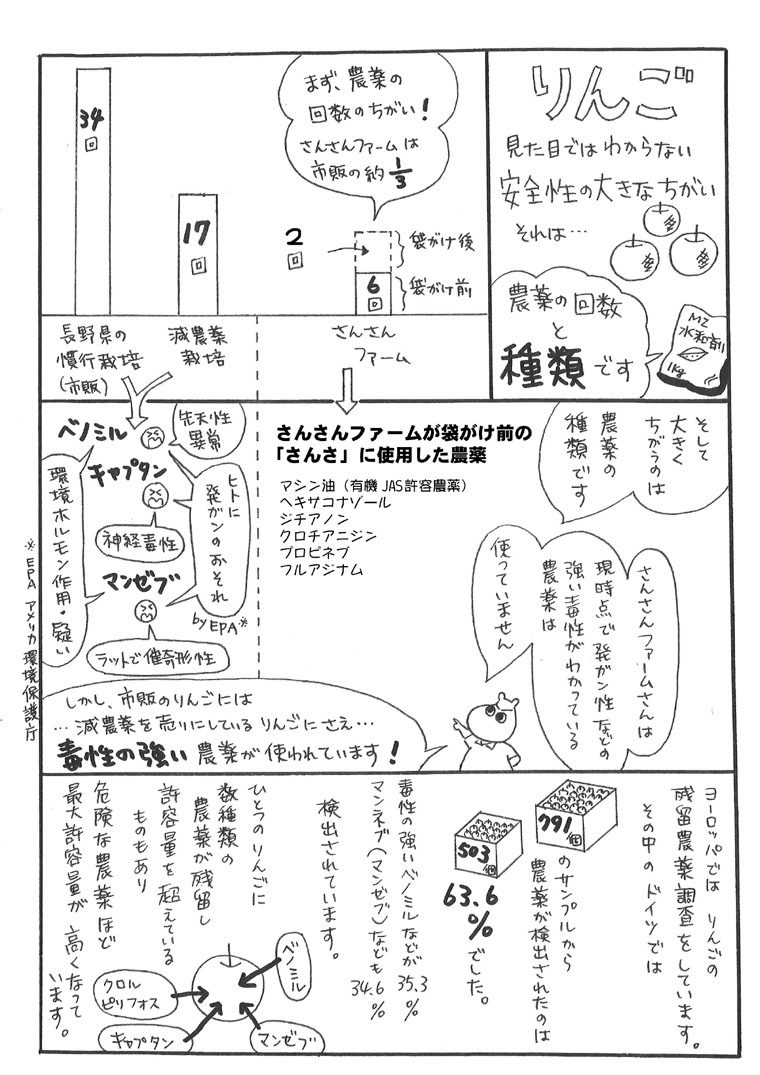 りんご
見た目ではわからない
安全性の大きなちがい
それは…
農薬の回数
と
種類です
MZ
水和剤
1kg
まず、農薬の
回数のちがい!
さんさんファームは
市販の約1/3
34
回
17
回
2
回
6
回
袋がけ後
袋がけ前
長野県の
慣行栽培
(市販)
減農薬
栽培
さんさん
ファーム
そして
大きく
ちがうのは
農薬の
種類です
さんさんファームさんは
現時点で発ガン性などの
強い毒性がわかっている
農薬は
使っていません
さんさんファームが袋がけ前の
「さんさ」に使用した農薬
マシン油(有機JAS許容農薬)
ヘキサコナゾール
ジチアノン
クロチアニジン
プロピネブ
フルアジナム
ベノミル
先天性
異常
キャプタン
神経毒性
マンゼブ
ラットで催奇形性
ヒトに
発ガンのおそれ
by EPA※
環境ホルモン作用・疑い
※EPA アメリカ環境保護庁
しかし、市販のりんごには
…減農薬を売りにしているりんごにさえ…
毒性の強い農薬が使われています!
ヨーロッパではりんごの
残留農薬調査をしています。
その中のドイツでは
791
個
のサンプルから
農薬が検出されたのは
503
個
63.6
%
でした。
毒性の強いベノミルなどが35.3%
マンネブ(マンゼブ)なども34.6%
検出されています。
ひとつのりんごに
数種類の
農薬が残留し
許容量を超えている
ものもあり
危険な農薬ほど
最大許容量が高くなって
います。
ベノミル
クロル
ピリフォス
キャプタン
マンゼブ